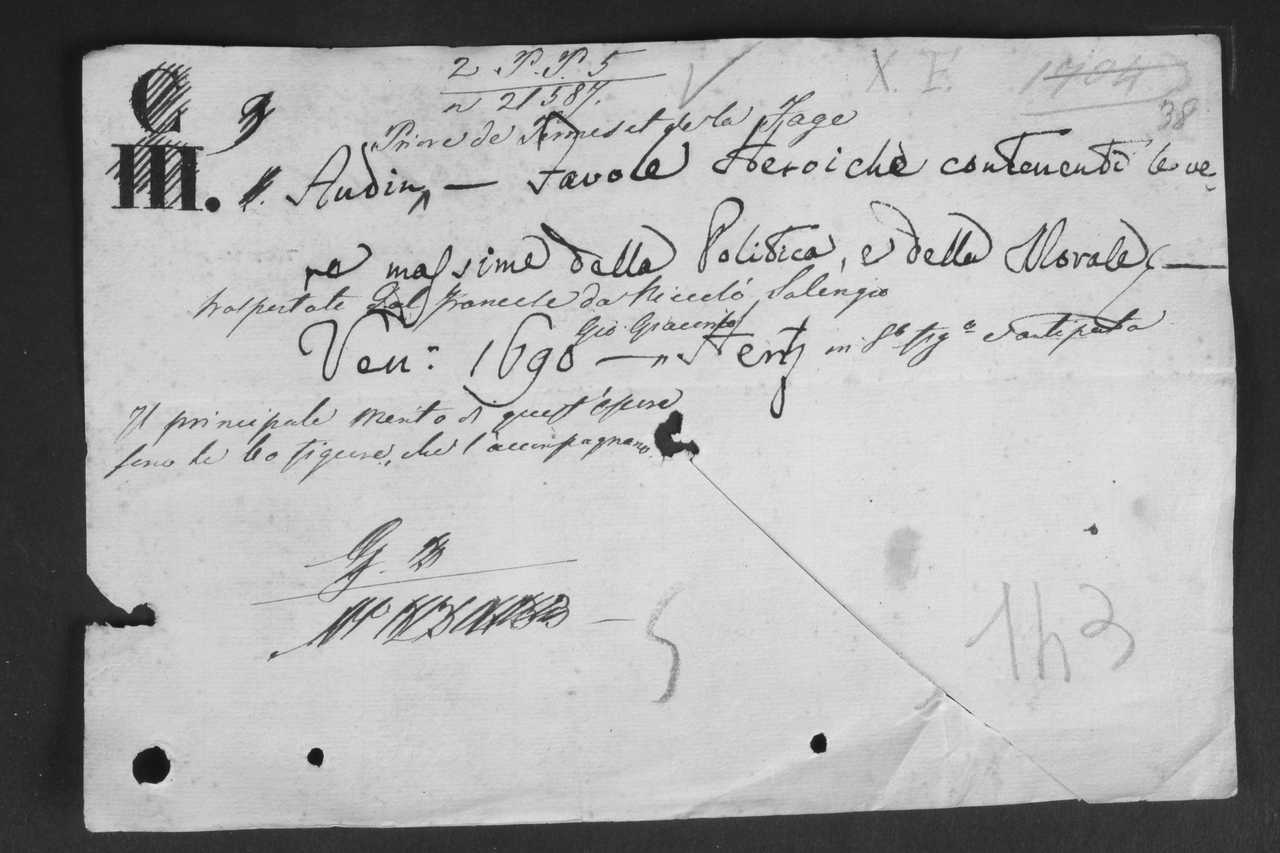 2 P. P. 5
n 21587.
X. E. 1704
38
C
Priore de Termes et de la Fage
III. Audin, — Favole Heroiche contenenti le ve-
re massime della Politica, e della Morale —
trasportate dal Francese da Niccolò Salengio
Gio. Giacomo
Ven: 1690 — Hertz in 8º fig.e e antiporta
Il principale merito di quest'opera
sono le 60 figure, che l'accompagnano.
G.
5
143